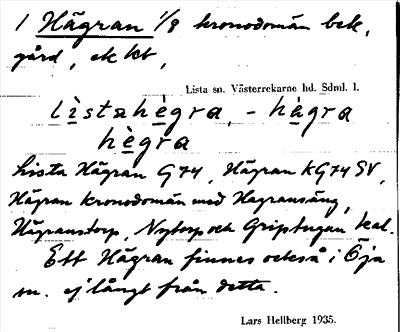 1 Hägran 1/8 kronodomän bek.
gård, ek kt,
Lista sn. Västerrekarne hd. Sdml. l.
lìstahègra, - hàgra
hègra
Lista Hägran G74, Hägran KG74 SV,
Hägran kronodomän med Hagransäng,
Hägranstorp, Nytorp och Griptugan kal.
Ett Hägran finnes också i Öja
sn. ej långt från detta.
Lars Hellberg 1935.